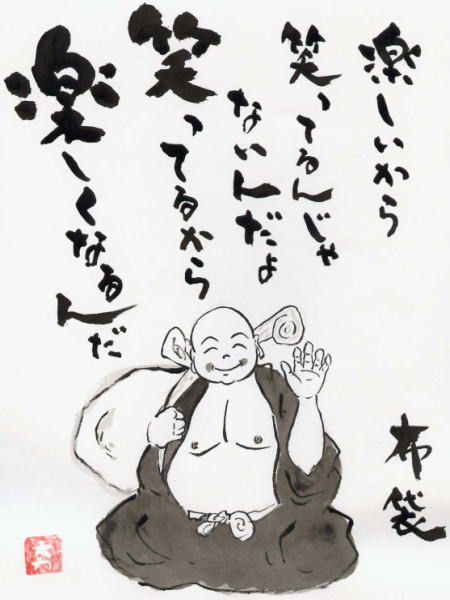 楽しいから
笑ってるんじゃ
ないんだよ
笑ってるから
楽しくなるんだ
布袋